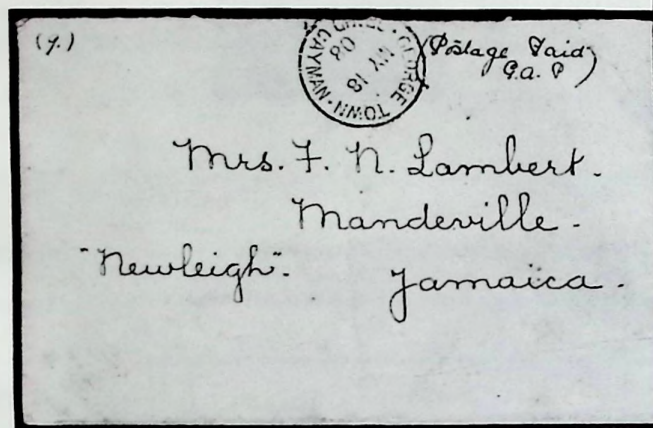 (y.)
GEORGE TOWN · GRAND CAYMAN ·
18
MY
08
(Postage Paid
G.A.P)
Mrs. F. N. Lambert.
Mandeville.
"Newleigh". Jamaica.